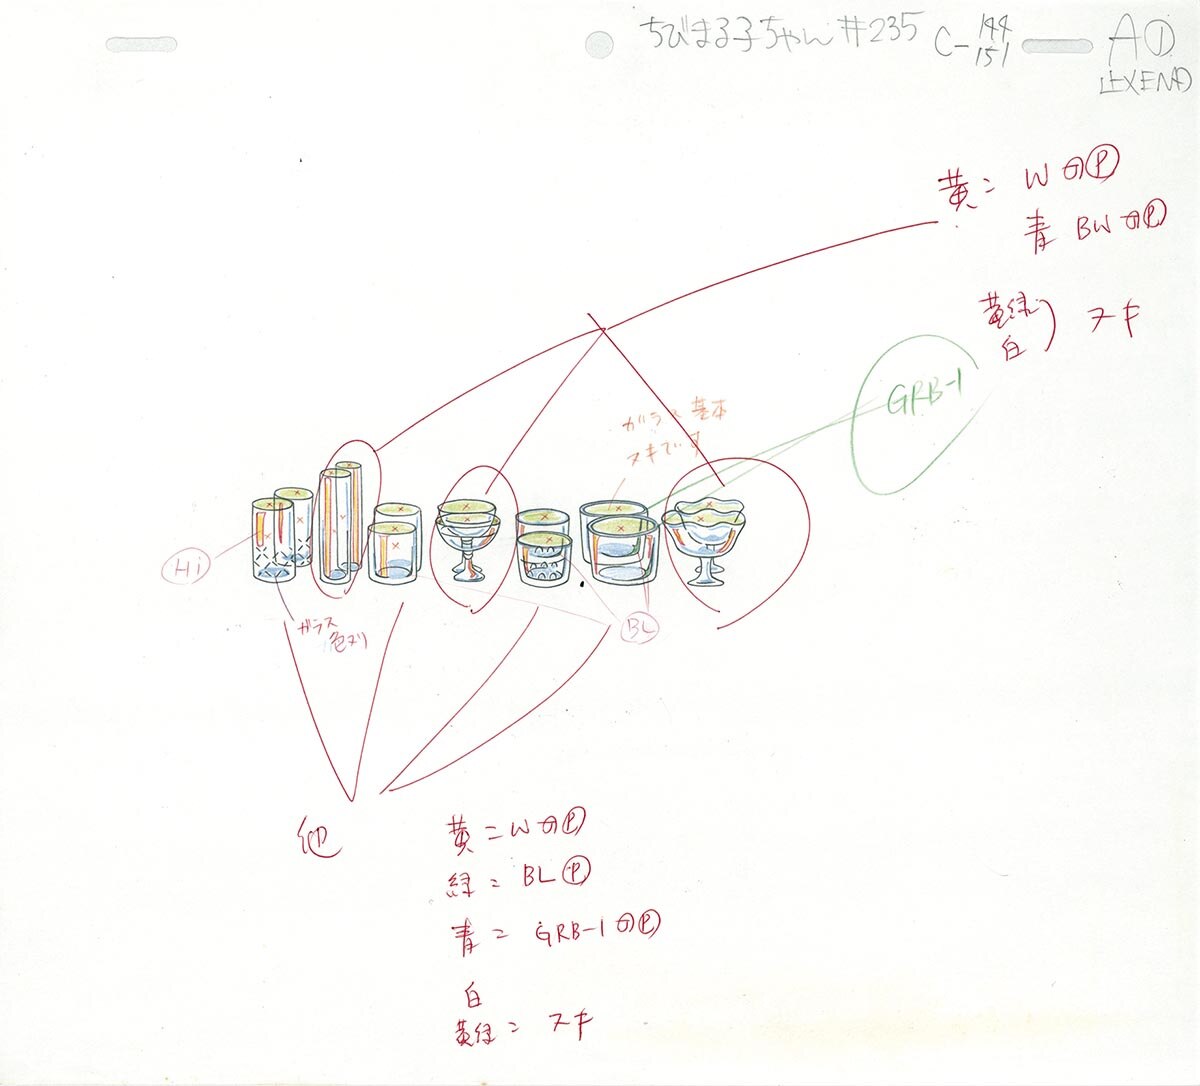 ちびまる子ちゃん #235
C-144
151
A①
止メEND
黄= WのⓅ
青 BWのⓅ
黄緑
白) ヌキ
GRB-1
ガラス 基本
ヌキです
Hi
ガラス
色ヌリ
BL
他
黄=WのⓅ
緑= BLⓅ
青= GRB-1のⓅ
白
黄緑= ヌキ